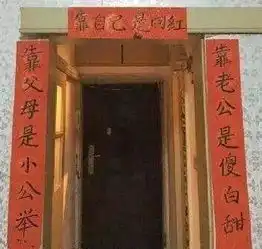 靠自己是网紅
靠父母是小公举
靠老公是傻白甜